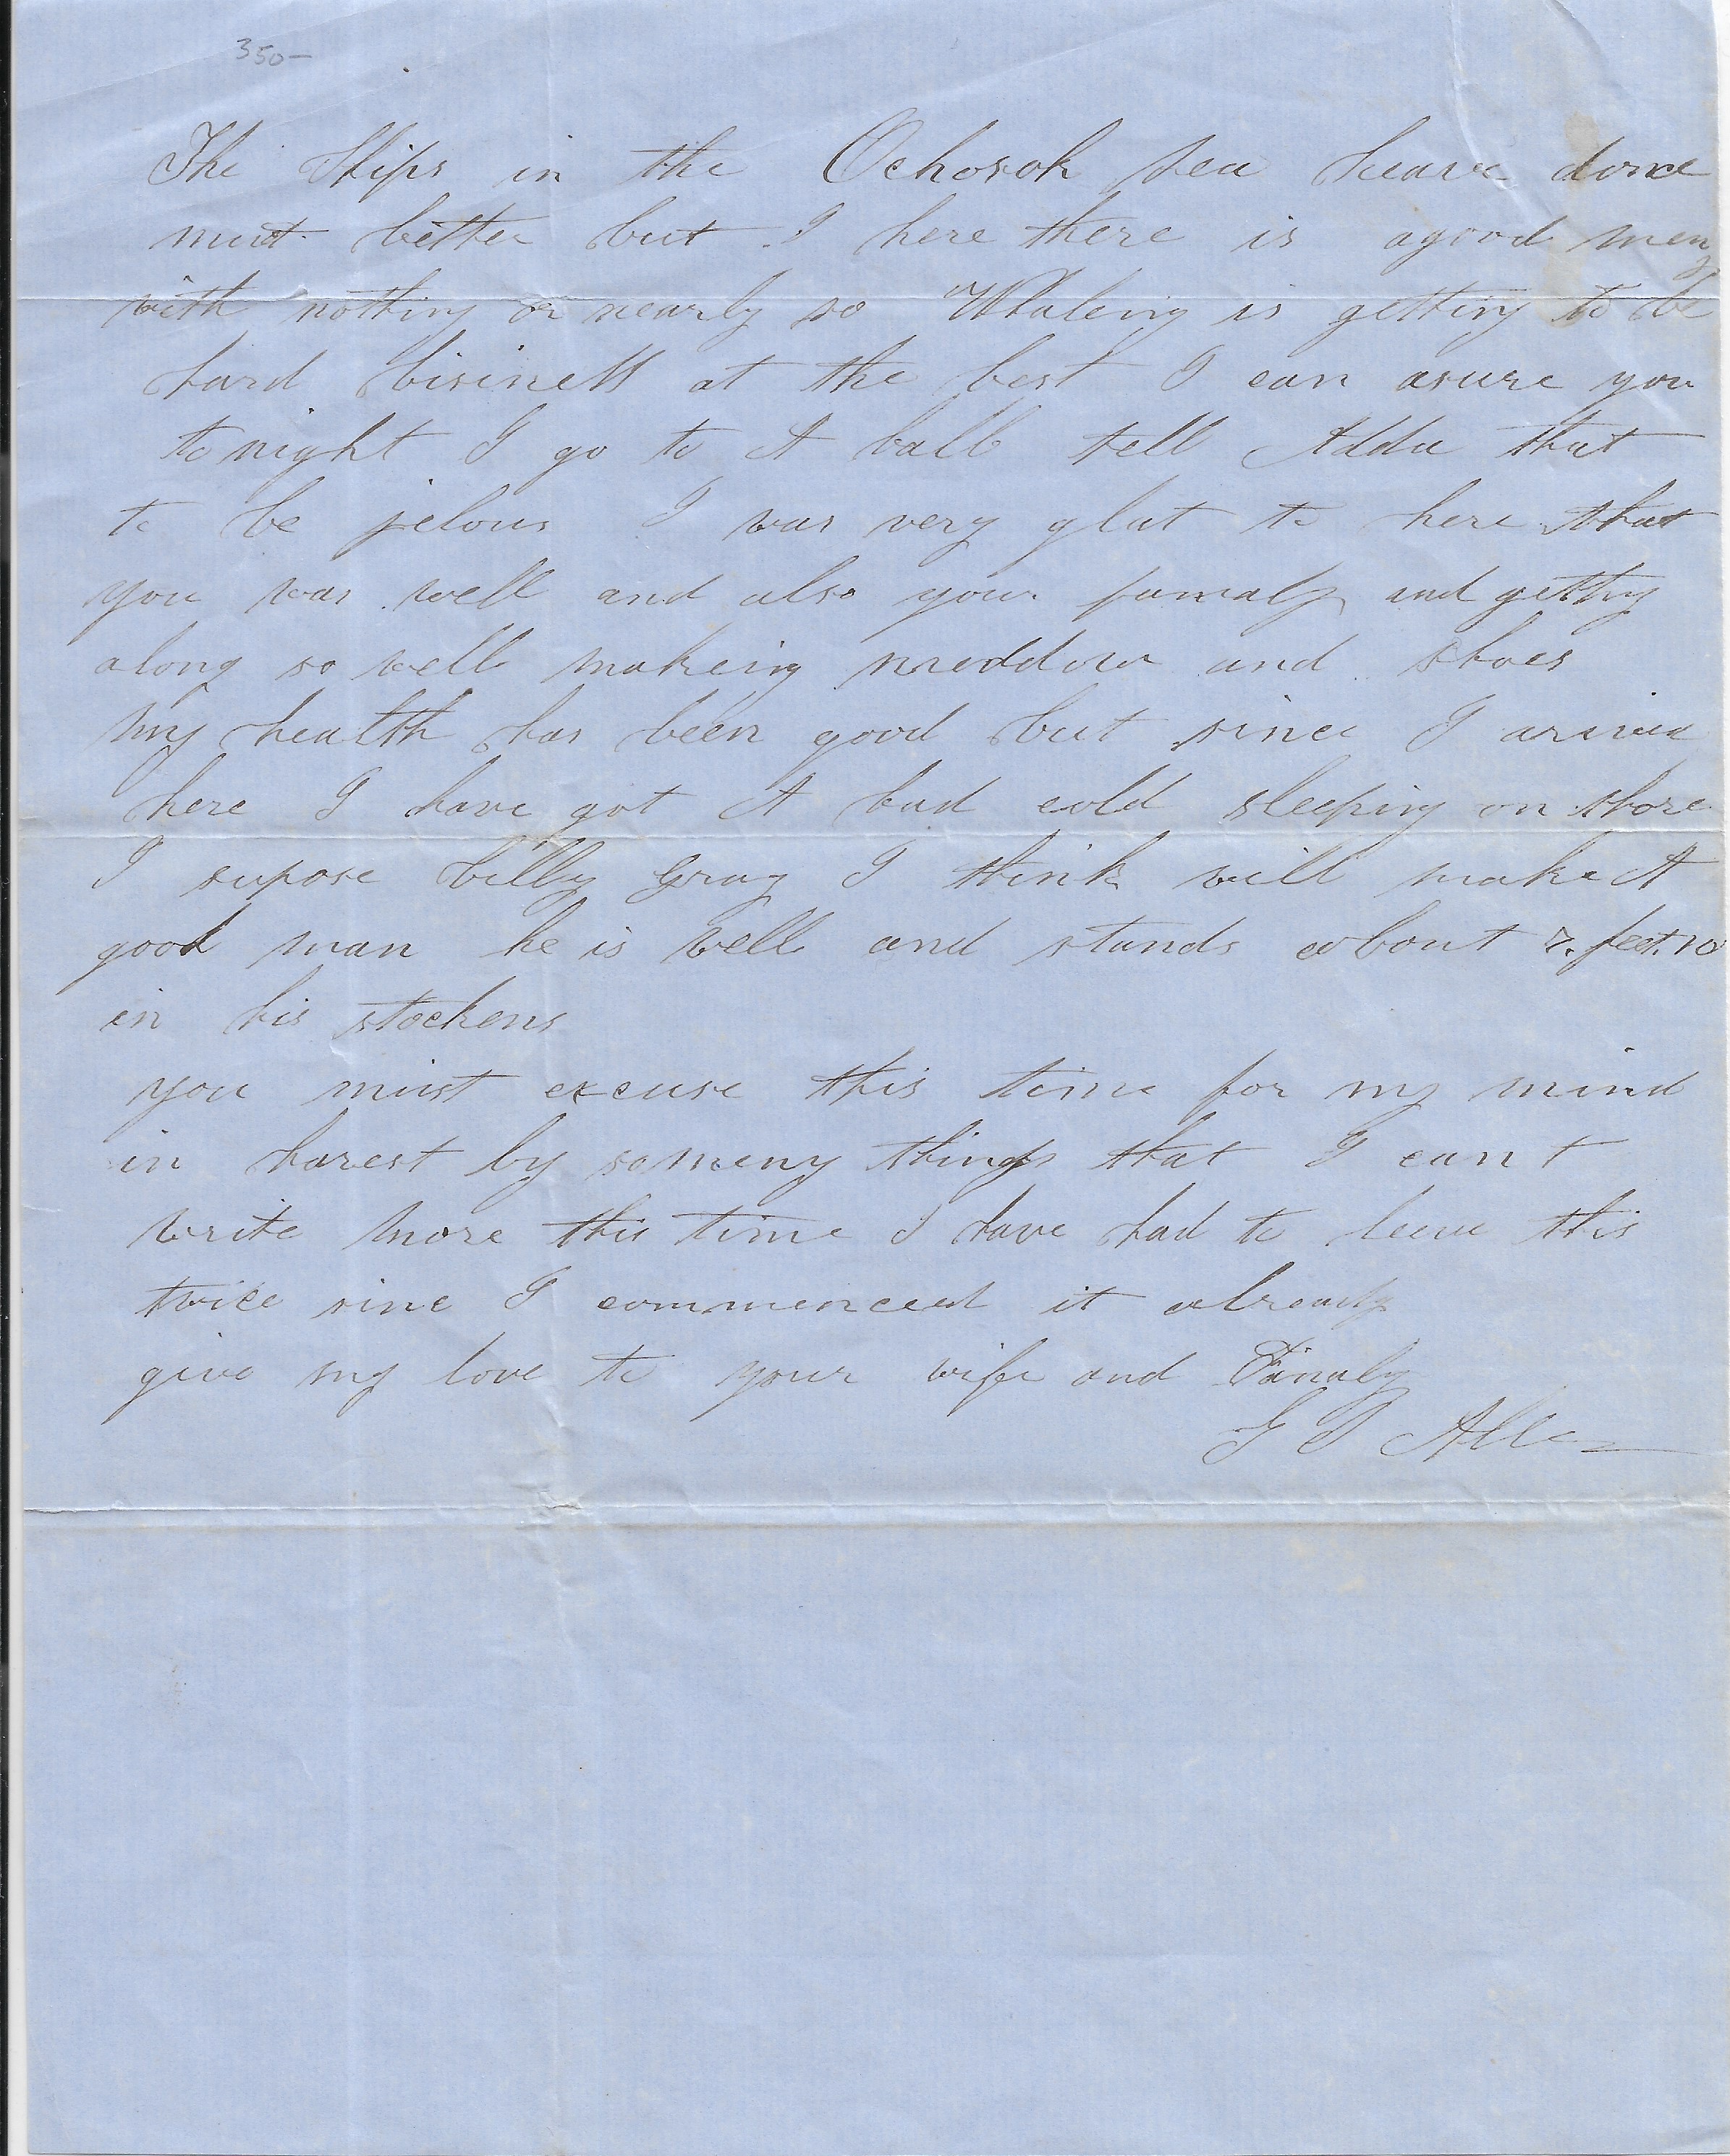 350-
The Ships in the Ochosok sea heave done
mut better but I here there is agood meny
with nothing or nearly so Whaleing is getting to be
hard bisiness at the best I can asure you
to night I go to A ball tell Adda that
to be jelous I was very glat to here that
you was well and also your famaly and getting
along so well makeing meddow and shoes
my health has been good but since I arived
here I have got A bad cold sleeping on shore
I supose billy Gray I think will make A
good man he is well and stands about 7. feet. 10
in his stockens
you must excuse this time for my mind
in harest by someny things that I cant
write more this time I have had to leeve this
twice sinc I commenced it already
give my love to your wife and Famaly
Allen